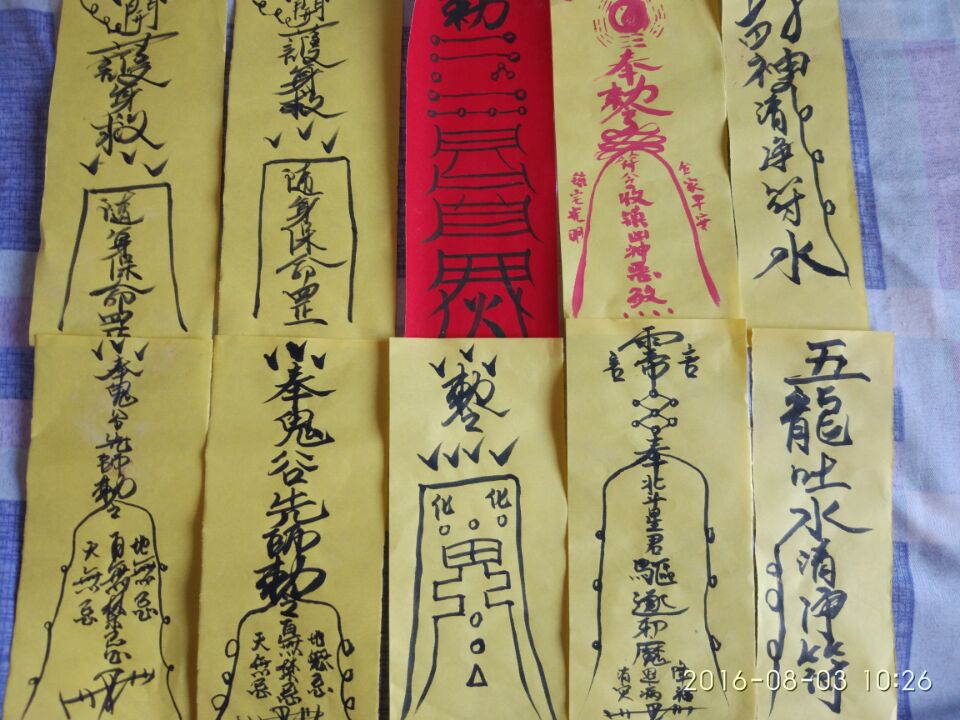 開
護身救
隨身保命罡
開
護身救
隨身保命罡
勅
三奉勅令
收鎮凶神惡煞
鎮宅光明
合家平安
神清净符水
奉鬼谷先師勅令
天無忌
百無禁忌
地無忌
奉鬼谷先師勅令
天無忌
百無禁忌
地無忌
勅令
化
化
奉北斗星君驅逐邪魔
五龍吐水清净符
2016-08-03 10:26